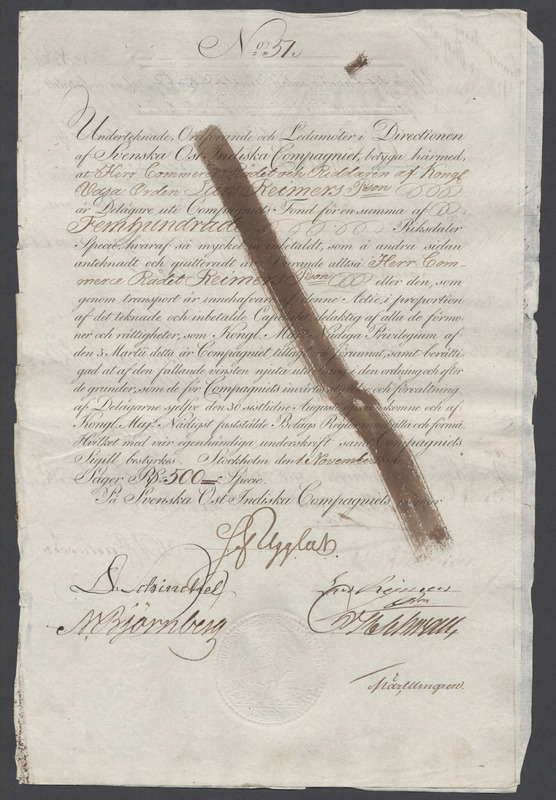 No. 51.
Underteknade, Ordförande och Ledamöter i Directionen
af Svenska Ost Indiska Compagniet, betyga härmed,
at Herr Commerce Rådet och Riddaren af Kongl.
Vasa Orden Lars Reimers Pson
är Delägare uti Compagniets Fond för en summa af
Femhundrade Riksdaler
Specie, hvaraf så mycket är inbetaldt, som å andra sidan
anteknadt och quitteradt är. Varande alltså Herr Com-
merce Rådet Reimers Pson eller den, som
genom transport är innehafvare af denne Actie i proportion
af det teknade och inbetalde Capitalet delaktig af alla de förmo-
ner och rättigheter, som Kongl. Maj:ts Nådiga Privilegium af
den 3. Martii detta år Compagniet tillagt och förunnat, samt berätti-
gad at af den fallande vinsten njuta utdelning i den ordning och efter
de grunder, som de för Compagniets invärtes och förvaltning
af Delägarne sjelfve den 30 sistlidne Augusti öfverenskomne och af
Kongl. Maj:t Nådigst fastställde Bolags Reglor innehålla och förmå.
Hvilket med vår egenhändiga underskrift samt Compagniets
Sigill bestyrkes. Stockholm den 1 November
Säger Rd 500 Specie.
På Svenska Ost Indiska Compagniets vägnar
af Ugglas.
D. Schinckel
Lars Reimers
Pson
M. Björnberg